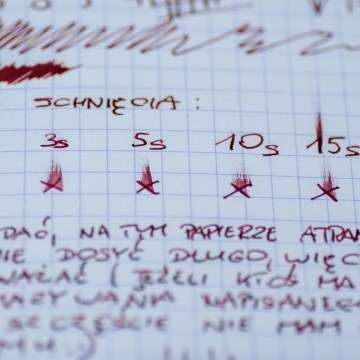 SCHNIĘCIA :
3s 5s 10s 15s
DAĆ, NA TYM PAPIERZE ATRAM
NIE DOSYĆ DŁUGO, WIĘC
WAŻAĆ (JEŻELI KTOŚ MA
MAZYWANIA NAPISANEG
SZCZĘŚCIE NIE MAM